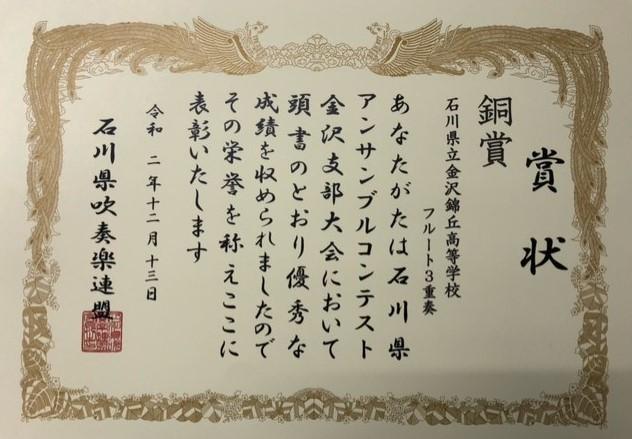 賞状
銅賞
石川県立金沢錦丘高等学校
フルート3重奏
あなたがたは石川県
アンサンブルコンテスト
金沢支部大会において
頭書のとおり優秀な
成績を収められましたので
その栄誉を称えここに
表彰いたします
令和二年十二月十三日
石川県吹奏楽連盟